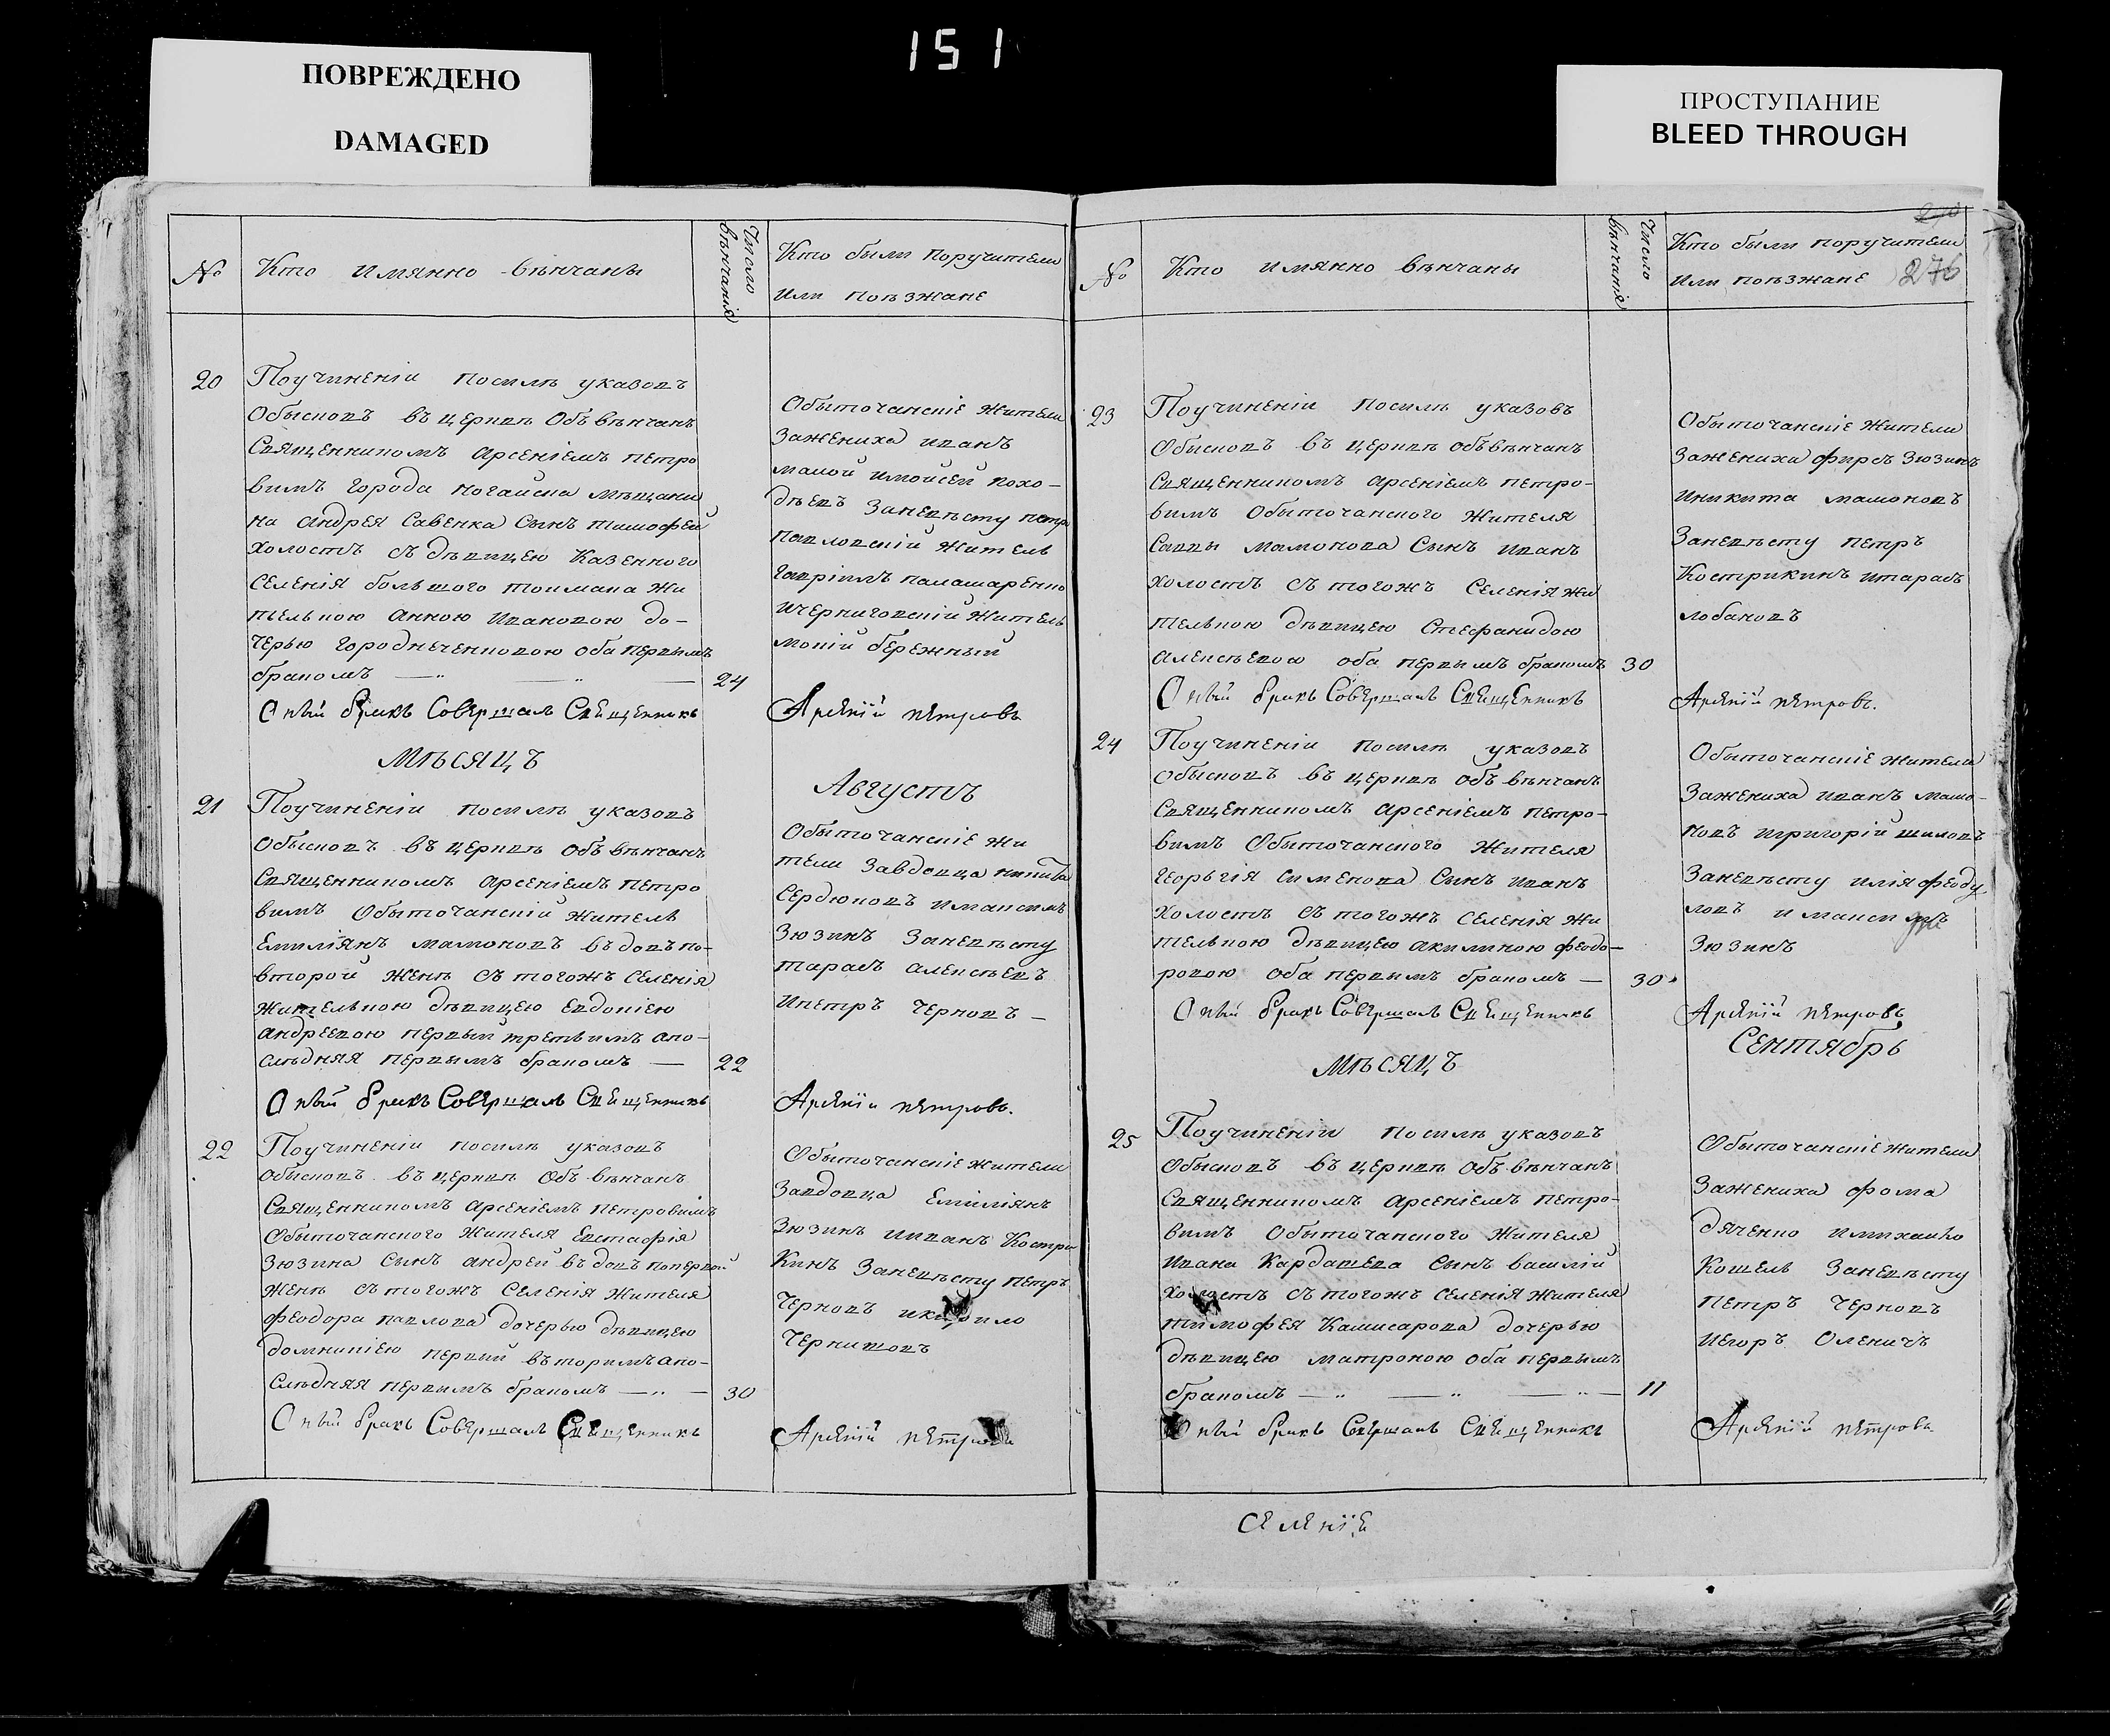 151
ПОВРЕЖДЕНО
DAMAGED
ПРОСТУПАНИЕ
BLEED THROUGH
№
Кто имянно вѣнчаны
Число вѣнчанiя
Кто были поручители
или поѣзжане
20
Поучиненіи посилѣ указовъ
Обысковъ въ церквѣ объ вѣнчанъ
Священникомъ арсеніемъ петро
вимъ города ногайска мѣщани
на андрея Савенка Сынъ тимофей
холостъ съ дѣвицею Казенного
Селенія большого токмака жи
телькою анною ивановою до-
черью городнеченковою оба первымъ
бракомъ
24
Обыточанскіе жители
Зажениха иванъ
малой имойсей похо-
дѣевъ Заневѣсту петро
павловскій житель
гавріилъ паламаренко
ичерниговскій житель
мокій бережный
Оный бракъ Совершалъ Священникъ
Арсеній петровъ
Мѣсяцъ
Августъ
21
Поучиненіи посилѣ указовъ
обысковъ въ церквѣ объ вѣнчанъ
Священникомъ арсеніемъ петро
вимъ Обыточанскій житель
Емиліянъ мамоновъ въдовъ по-
второй женѣ съ тогожъ селенія
жителькою дѣвицею Евдокіею
андреевою первый третьимъ апо-
слѣдняя первымъ бракомъ
22
Обыточанскіе жи
тели Завдовца никита
Сердюковъ имаксимъ
Зюзинъ Заневѣсту
тарасъ алексѣевъ
ипетръ черновъ
Оный бракъ Совершалъ Священникъ
Арсеній петровъ.
22
Поучиненіи посилѣ указовъ
обысковъ въ церквѣ Объ вѣнчанъ
Священникомъ арсеніемъ петровимъ
Обыточанского жителя Евстафія
Зюзина сынъ андрей въдовъ поперво́й
женѣ съ тогожъ Селенія жителя
феодора павлова дочерью дѣвицею
домникіею первий въторимъ апо-
слѣдняя первимъ бракомъ
30
Обыточанскіе жители
Завдовца Емиліянъ
Зюзинъ ииванъ Костри
Кинъ Заневѣсту петръ
Черновъ икирило
Чернишовъ
Оный бракъ Совершалъ Священникъ
Арсеній петровъ
№
Кто имянно вѣнчаны
Число вѣнчанiя
Кто были поручители
Или поѣзжане
276
23
Поучиненіи посилѣ указовъ
Обысковъ въ церквѣ объвѣнчанъ
Священникомъ арсеніемъ петро-
вимъ Обыточанского жителя
Саввы мамонова Сынъ иванъ
холостъ съ тогожъ Селенія жи
телькою дѣвицею Стефанидою
алексѣевою оба первымъ бракомъ
30
Обыточанскіе жители
Зажениха фирсъ Зюзинъ
иникита мамоновъ
Заневѣсту петръ
Кострикинъ итарасъ
лобановъ
Оный бракъ Совершалъ Священникъ
Арсеній петровъ.
24
Поучиненіи посилѣ указовъ
обысковъ въ церквѣ объ вѣнчанъ
Священникомъ арсеніемъ петро-
вимъ Обыточанского жителя
георгія Сименова Сынъ иванъ
холостъ съ тогожъ селенія жи
телькою дѣвицею акилиною феодо-
ровою оба первымъ бракомъ
30
Обыточанскіе жители
Зажениха иванъ мамо-
новъ игригорій шиловъ
Заневѣсту илія феоду
ловъ и максимъ
Зюзинъ
Оный бракъ Совершалъ Священникъ
Арсеній петровъ
Мѣсяцъ
Сентябрь
25
Поучиненіи посилѣ указовъ
Обысковъ въ церквѣ объ вѣнчанъ
Священникомъ арсеніемъ петро-
вимъ Обыточанского жителя
ивана Кардашева сынъ василій
холостъ съ тогожъ селенія жителя
тимофея Камисарова дочерью
дѣвицею матроною оба первымъ
бракомъ
11
Обыточанскіе жители
Зажениха фома
дяченко имихайло
Кошель Заневѣсту
петръ черновъ
иегоръ Оленичъ
Оный бракъ Совершалъ Священникъ
Арсеній петровъ
селеніе